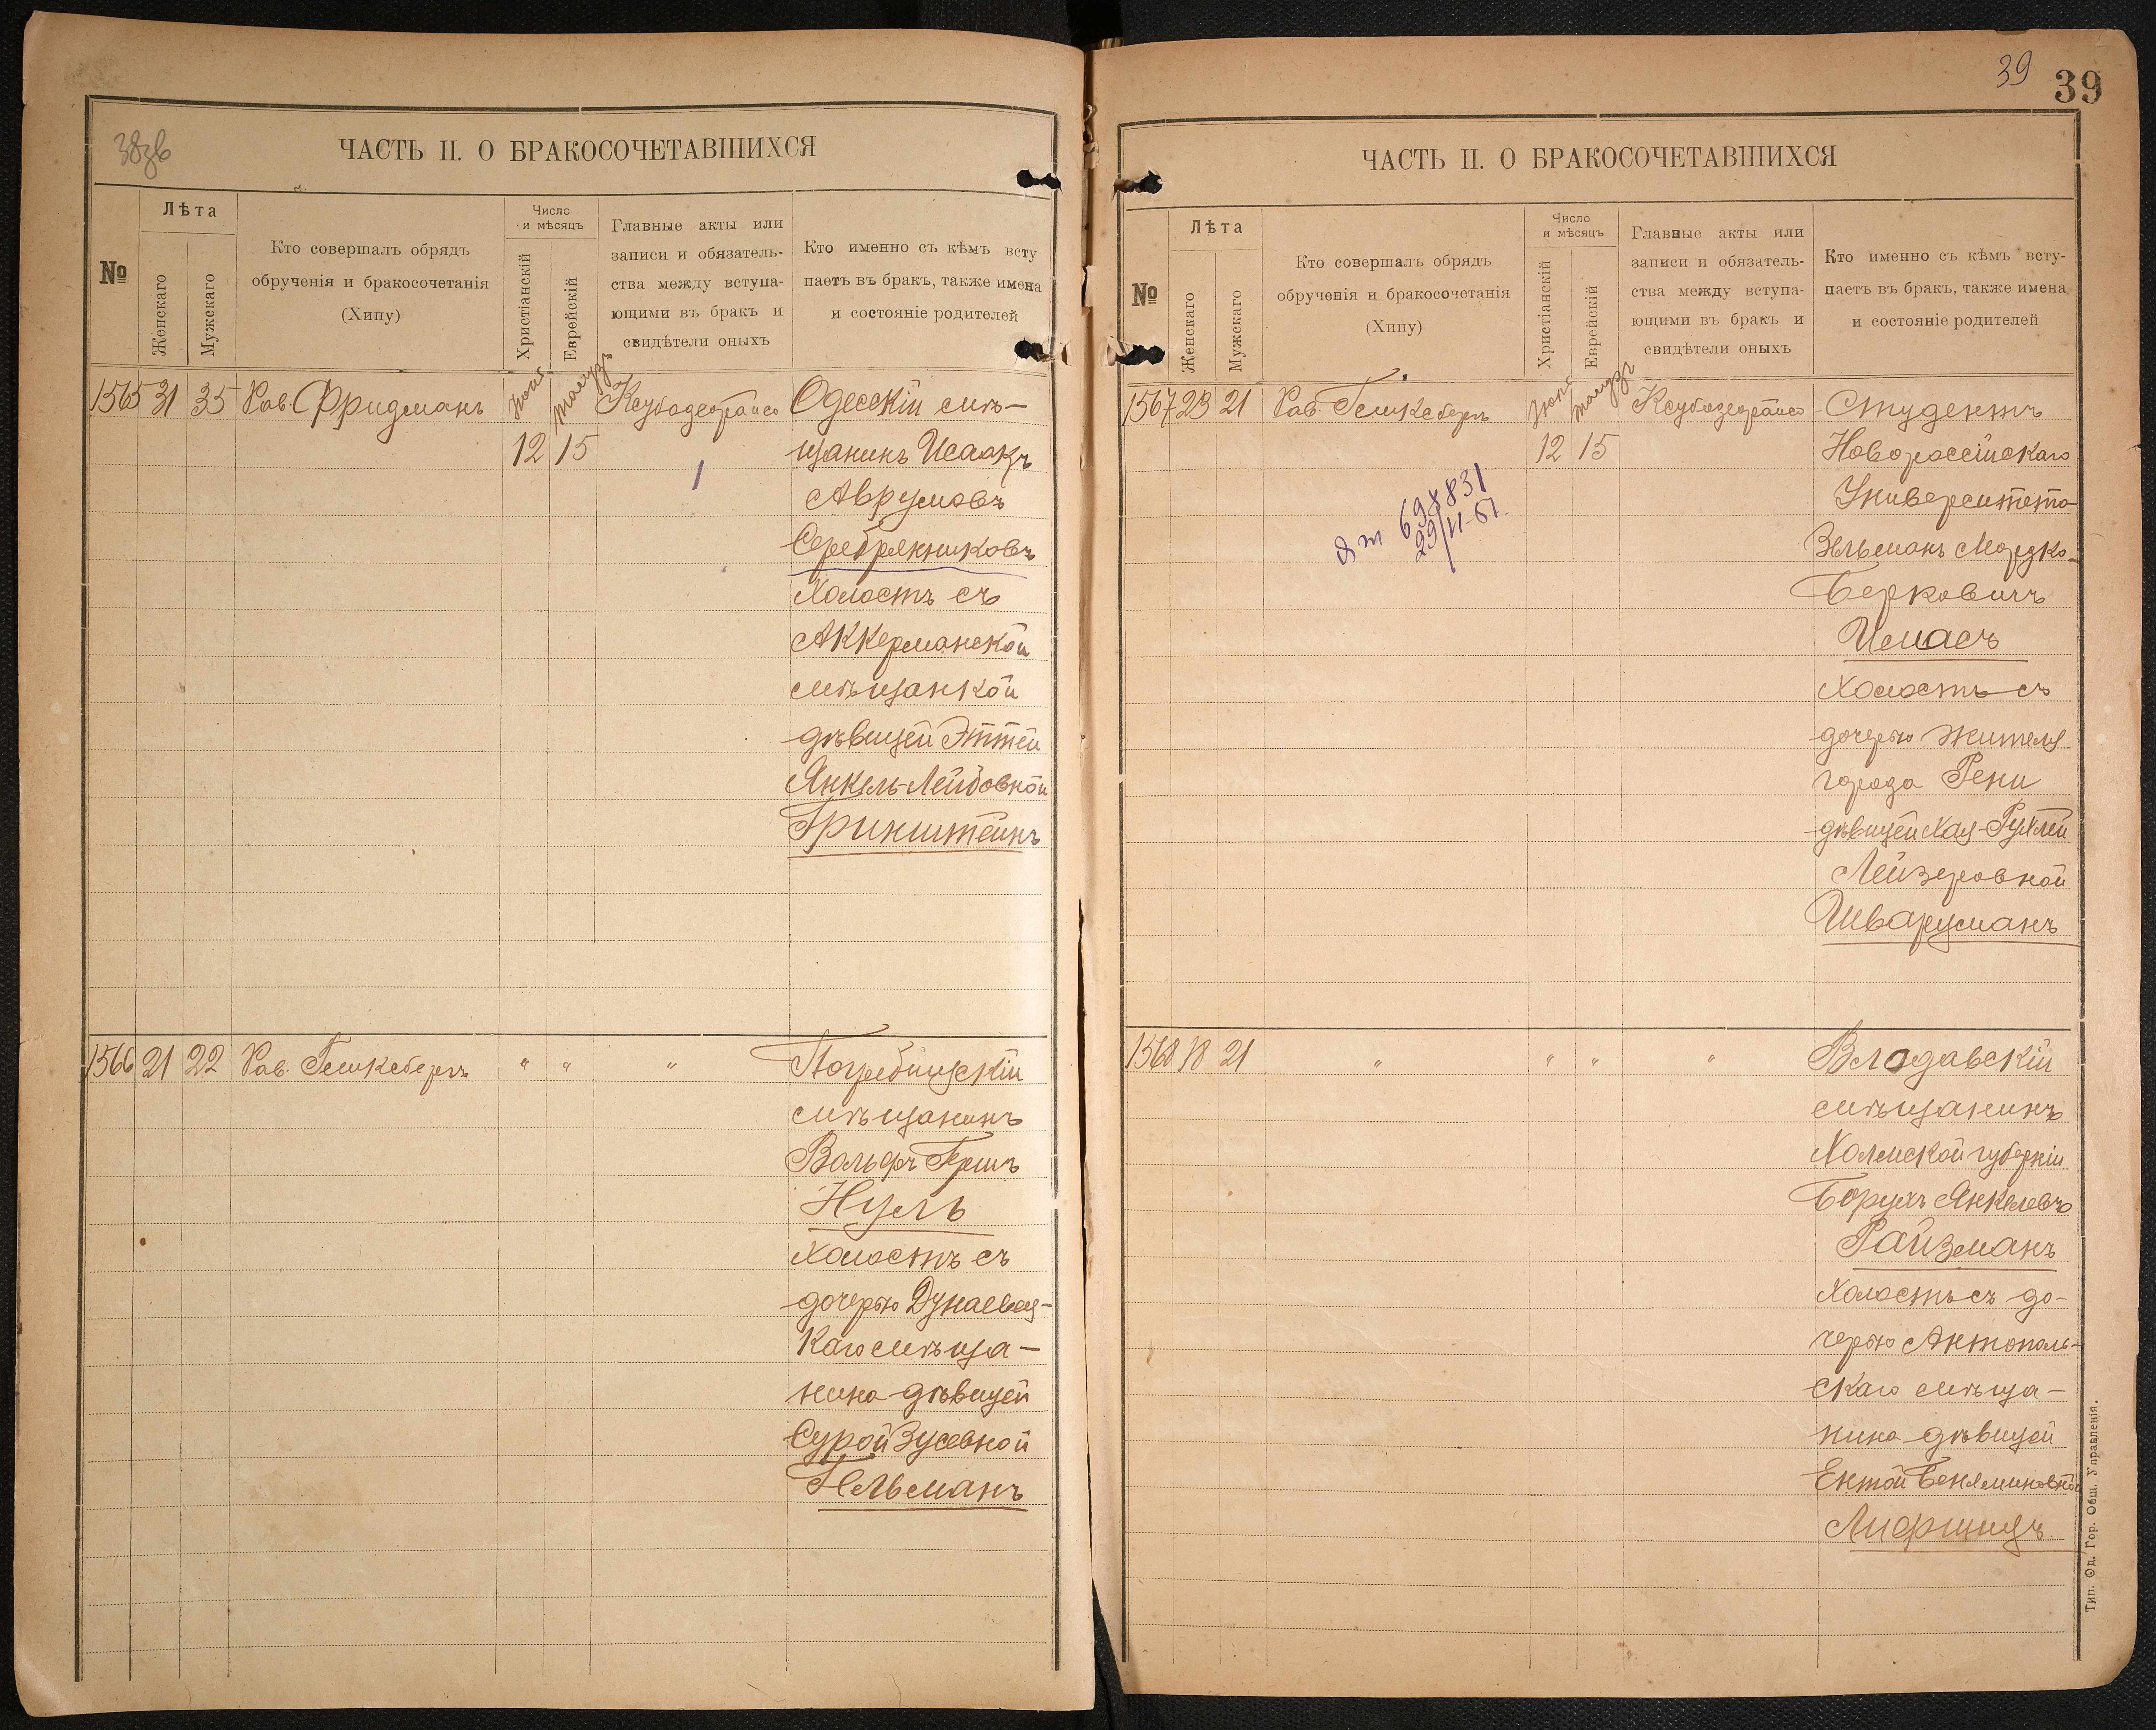 38зв
ЧАСТЬ II. О БРАКОСОЧЕТАВШИХСЯ
№
Лѣта
Женскаго
Мужскаго
Кто совершалъ обрядъ
обрученія и бракосочетанія
(Хипу)
Число
и мѣсяцъ
Христіанскій
Еврейскій
Главные акты или
записи и обязатель-
ства между вступа-
ющими въ бракъ и
свидѣтели оныхъ
Кто именно съ кѣмъ всту
паетъ въ бракъ, также имена
и состояніе родителей
1565 31 35 Рав. Фридманъ
12 15
Одесскій мѣ-
щанинъ Исаакъ
Аврумовъ
Серебрянниковъ
Холостъ съ
Аккерманской
мѣщанкой
дѣвицей Эттей
Янкель-Лейбовной
Гринштейнъ
1566 21 22 Рав. " " "
мѣщанинъ
Вольфъ Гершъ
Нуль
Холостъ съ
дочерью
каго мѣща-
нина дѣвицей
Сурой Зусевной
Гельманъ
39
39
ЧАСТЬ II. О БРАКОСОЧЕТАВШИХСЯ
№
Лѣта
Женскаго
Мужскаго
Кто совершалъ обрядъ
обрученія и бракосочетанія
(Хипу)
Число
и мѣсяцъ
Христіанскій
Еврейскій
Главные акты или
записи и обязатель-
ства между вступа-
ющими въ бракъ и
свидѣтели оныхъ
Кто именно съ кѣмъ всту-
паетъ въ бракъ, также имена
и состояніе родителей
1567 23 21 Рав.
12 15
698831
29/11-51.
Студентъ
Новороссійскаго
Университета
Зельманъ Мордко-
Берковичъ
Имасъ
Холостъ съ
дочерью жителя
города Рени
дѣвицей Хая-Рухлей
Лейзеровной
Шварцманъ
1568 18 21 " " " "
Влодавскій
мѣщанинъ
Холмской губерніи
Борухъ Янкелевъ
Райзманъ
Холостъ съ до-
черью Антополь-
скаго мѣща-
нина дѣвицей
Ентой Беняминовной
Лифшицъ
Тип. Од. Гор. Общ. Управленія.